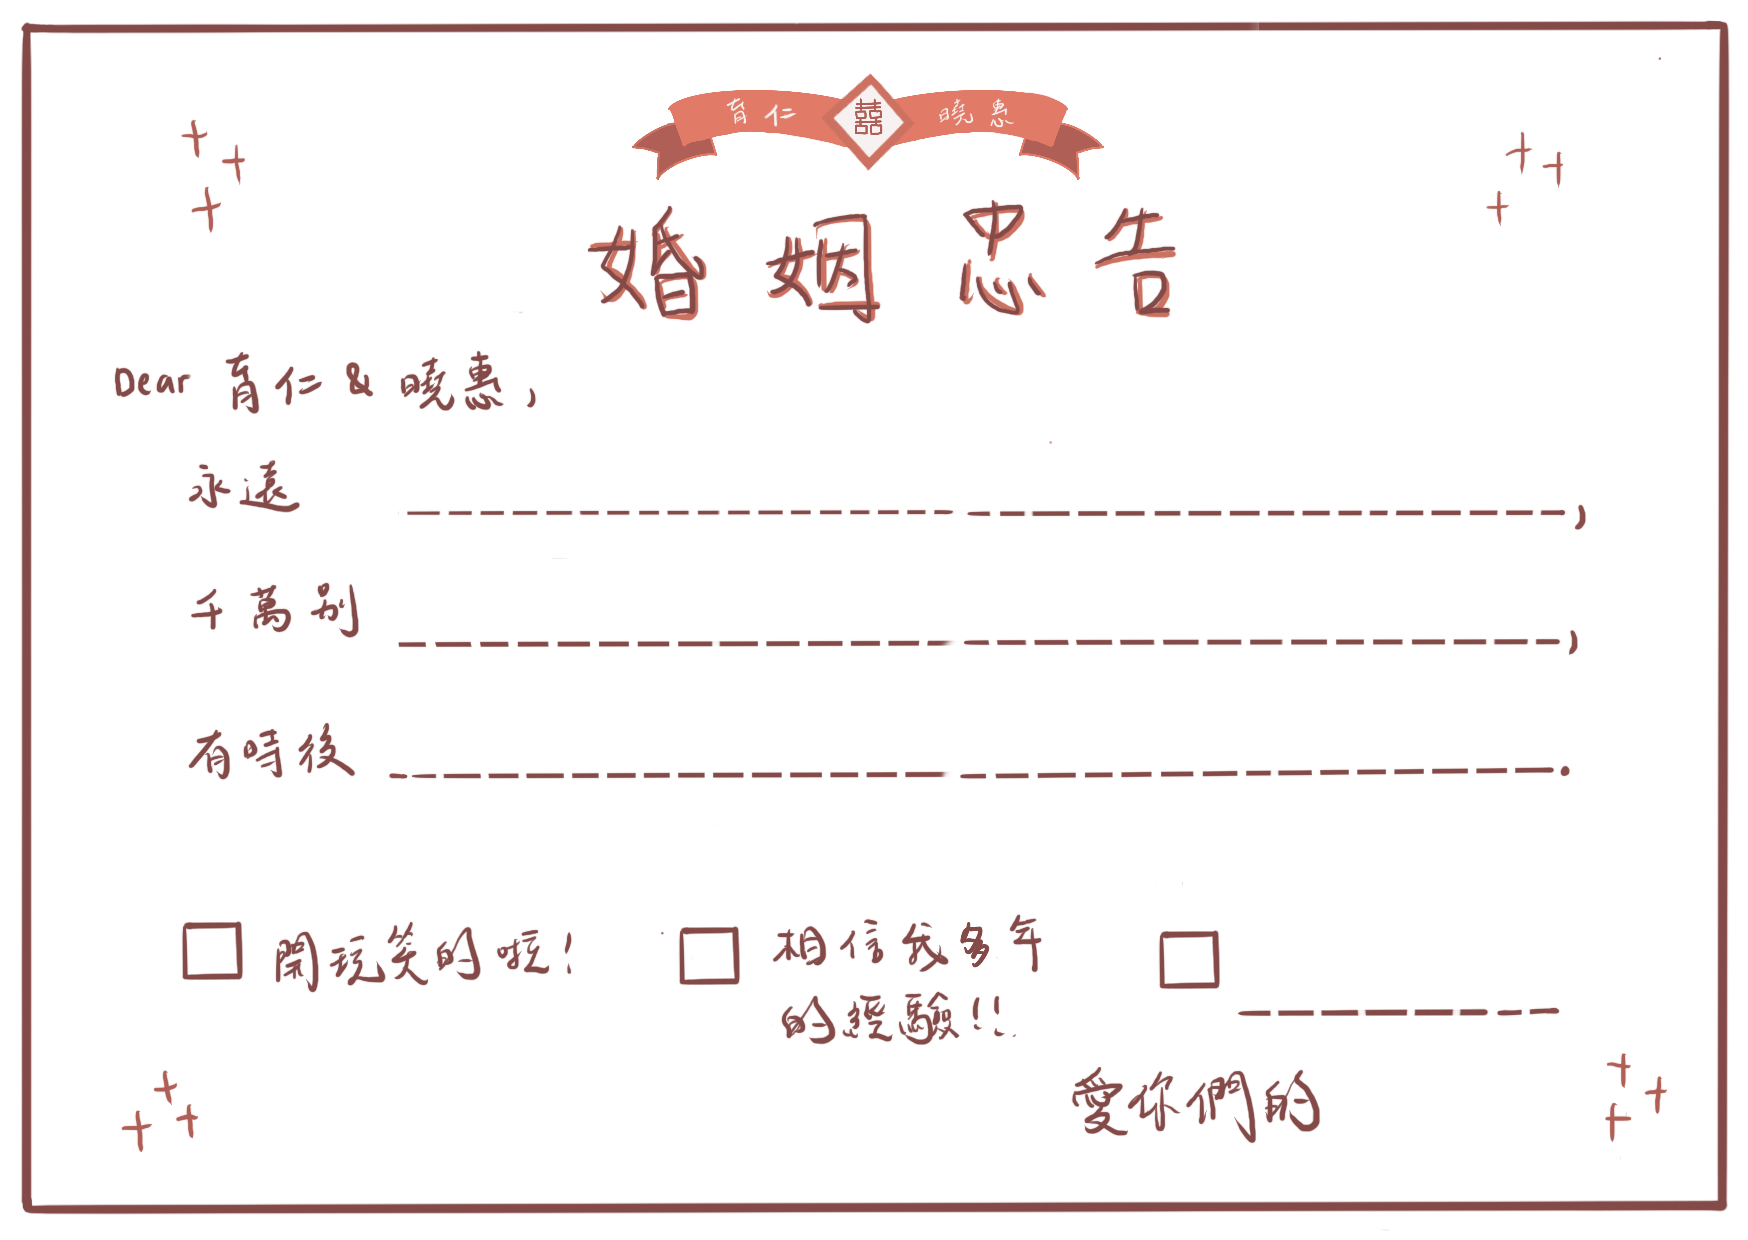 育仁 囍 曉惠
婚姻忠告
Dear 育仁 & 曉惠,
永遠 ,
千萬別 ,
有時後 .
開玩笑的啦!
相信我多年
的經驗!!
愛你們的